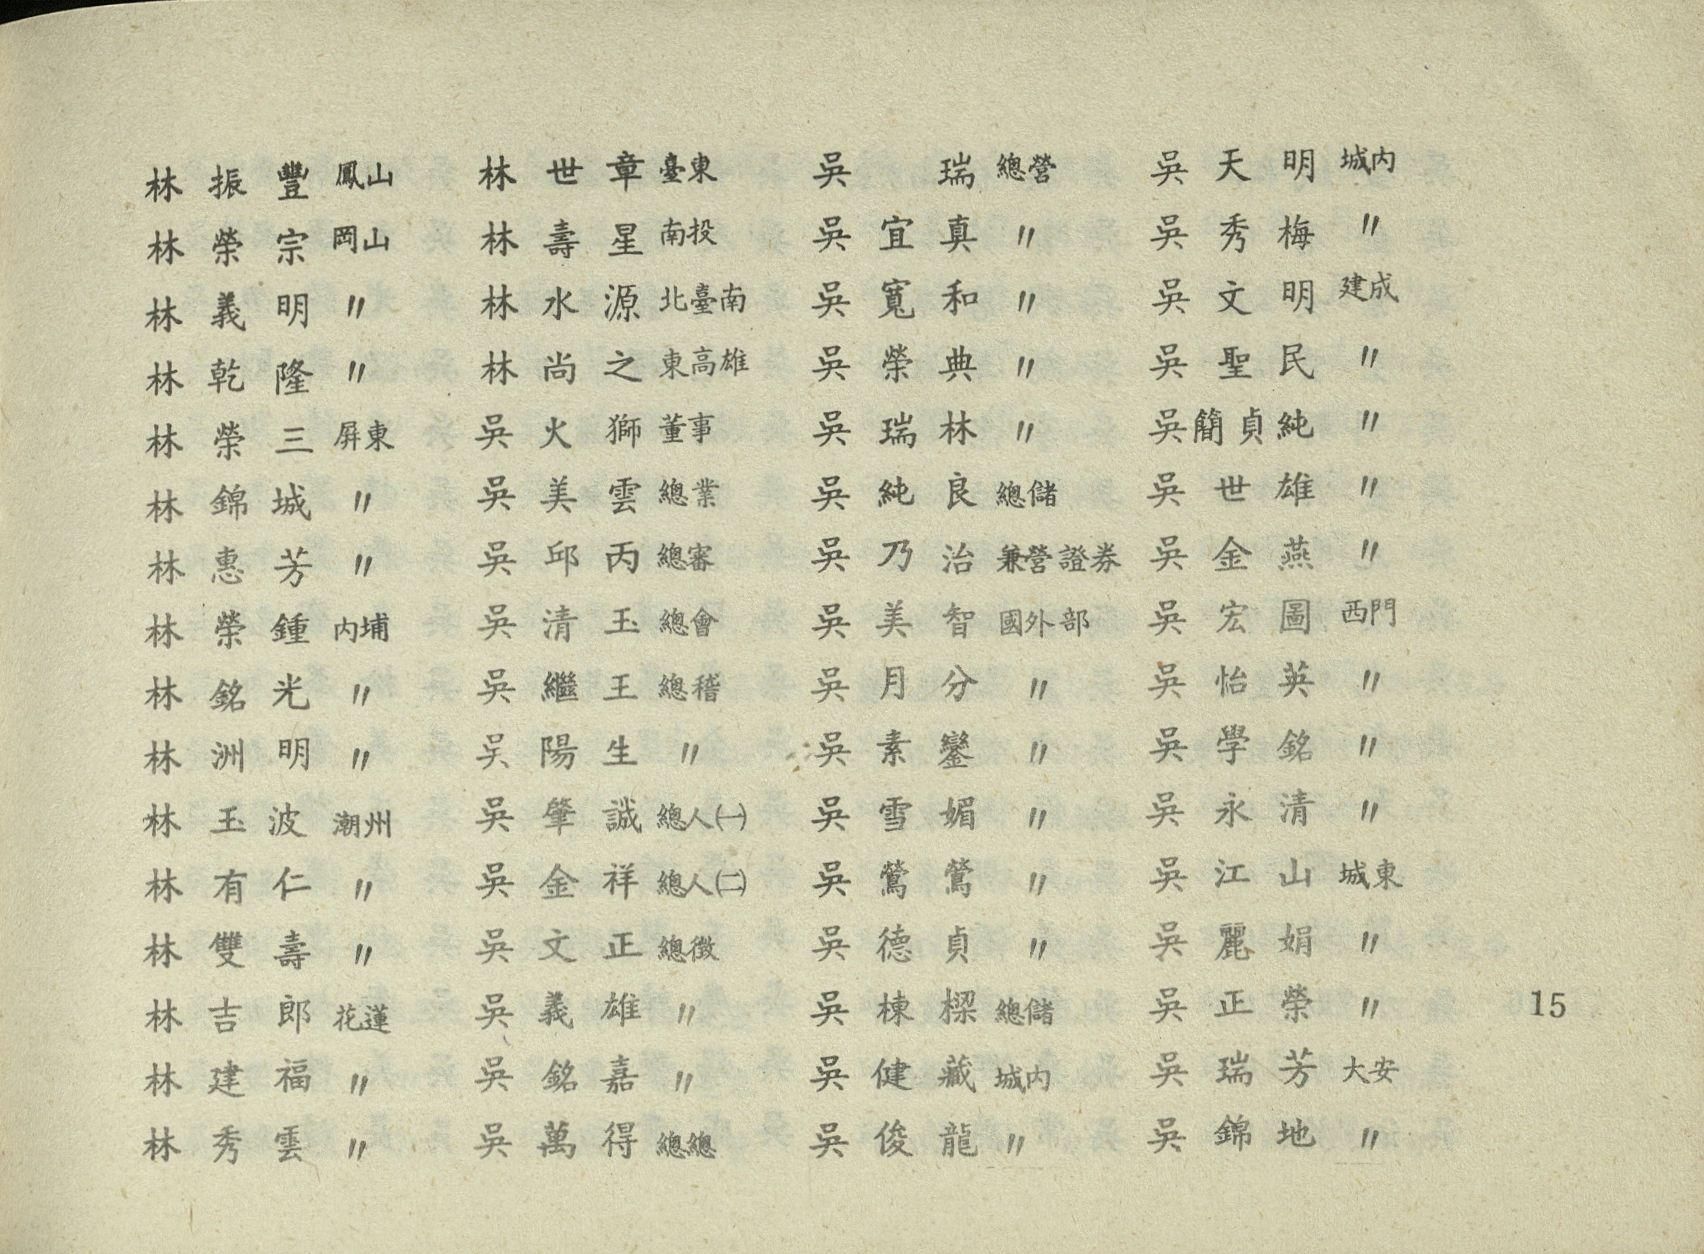 林振豐 鳳山
林榮宗 岡山
林義明 〃
林乾隆 〃
林榮三 屏東
林錦城 〃
林惠芳 〃
林榮鍾 內埔
林銘光 〃
林洲明 〃
林玉波 潮州
林有仁 〃
林雙壽 〃
林吉郎 花蓮
林建福 〃
林秀雲 〃
林世章 臺東
林壽星 南投
林水源 北臺南
林尚之 東高雄
吳火獅 董事
吳美雲 總業
吳邱丙 總審
吳清玉 總會
吳繼王 總稽
吳陽生 〃
吳肇誠 總人㈠
吳金祥 總人㈡
吳文正 總徵
吳義雄 〃
吳銘嘉 〃
吳萬得 總總
吳瑞 總營
吳宜真 〃
吳寬和 〃
吳榮典 〃
吳瑞林 〃
吳純良 總儲
吳乃治 兼營證券
吳美智 國外部
吳月分 〃
吳素鑾 〃
吳雪媚 〃
吳鶯鶯 〃
吳德貞 〃
吳棟樑 總儲
吳健藏 城内
吳俊龍 〃
吳天明 城内
吳秀梅 〃
吳文明 建成
吳聖民 〃
吳簡貞純 〃
吳世雄 〃
吳金燕 〃
吳宏圖 西門
吳怡英 〃
吳學銘 〃
吳永清 〃
吳江山 城東
吳麗娟 〃
吳正榮 〃
吳瑞芳 大安
吳錦地 〃
15